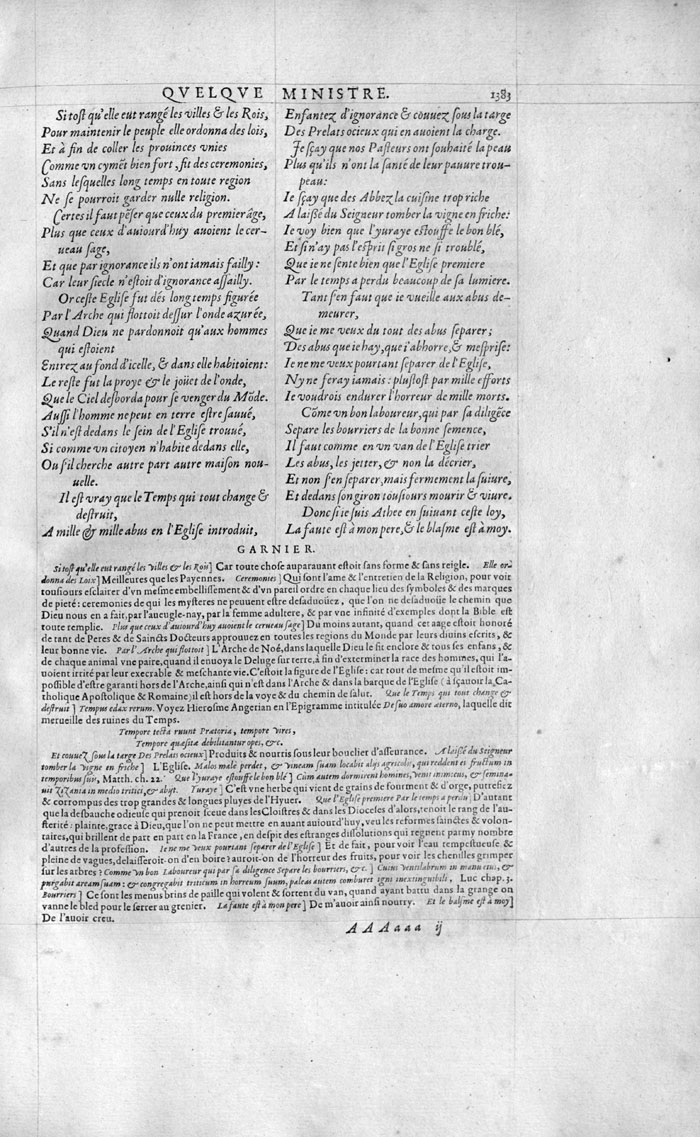 QVELQVE MINISTRE. 1383
Si tost qu'elle eut rangé les villes & les Rois,
Pour maintenir le peuple elle ordonna des lois,
Et à fin de coller les prouinces vnies
Comme vn cymẽt bien fort, fit des ceremonies,
Sans lesquelles long temps en toute region
Ne se pourroit garder nulle religion.
Certes il faut pẽser que ceux du premier âge,
Plus que ceux d'auiourd'huy auoient le cer-
ueau sage,
Et que par ignorance ils n'ont iamais failly:
Car leur siecle n'estoit d'ignorance assailly.
Or ceste Eglise fut dés long temps figurée
Par l'Arche qui flottoit dessur l'onde azurée,
Quand Dieu ne pardonnoit qu'aux hommes
qui estoient
Entrez au fond d'icelle, & dans elle habitoient:
Le reste fut la proye & le joüet de l'onde,
Que le Ciel desborda pour se venger du Mõde.
Aussi l'homme ne peut en terre estre sauué,
S'il n'est dedans le sein de l'Eglise trouué,
Si comme vn citoyen n'habite dedans elle,
Ou s'il cherche autre part autre maison nou-
uelle.
Il est vray que le Temps qui tout change &
destruit,
A mille & mille abus en l'Eglise introduit,
Enfantez d'ignorance & couuez sous la targe
Des Prelats ocieux qui en auoient la charge.
Je sçay que nos Pasteurs ont souhaité la peau
Plus qu'ils n'ont la santé de leur pauure trou-
peau:
Ie sçay que des Abbez la cuisine trop riche
A laissé du Seigneur tomber la vigne en friche:
Ie voy bien que l'yuraye estouffe le bon blé,
Et si n'ay pas l'esprit si gros ne si troublé,
Que ie ne sente bien que l'Eglise premiere
Par le temps a perdu beaucoup de sa lumiere.
Tant s'en faut que ie vueille aux abus de-
meurer,
Que ie me veux du tout des abus separer;
Des abus que ie hay, que i'abhorre, & mesprise:
Ie ne me veux pourtant separer de l'Eglise,
Ny ne feray iamais: plustost par mille efforts
Ie voudrois endurer l'horreur de mille morts.
Cõme vn bon laboureur, qui par sa diligẽce
Separe les bourriers de la bonne semence,
Il faut comme en vn van de l'Eglise trier
Les abus, les jetter, & non la décrier,
Et non s'en separer, mais fermement la suiure,
Et dedans son giron tousiours mourir & viure.
Donc si ie suis Athee en suiuant ceste loy,
La faute est à mon pere, & le blasme est à moy.
GARNIER.
Si tost qu'elle eut rangé les villes & les Rois] Car toute chose auparauant estoit sans forme & sans reigle. Elle or-
donna des Loix] Meilleures que les Payennes. Ceremonies] Qui sont l'ame & l'entretien de la Religion, pour voir
tousiours esclairer d'vn mesme embellissement & d'vn pareil ordre en chaque lieu des symboles & des marques
de pieté: ceremonies de qui les mysteres ne peuuent estre desaduoüez, que l'on ne desaduoüe le chemin que
Dieu nous en a fait, par l'aueugle-nay, par la femme adultere, & par vne infinité d'exemples dont la Bible est
toute remplie. Plus que ceux d'auiourd'huy auoient le cerueau sage] Du moins autant, quand cet aage estoit honoré
de tant de Peres & de Saincts Docteurs approuuez en toutes les regions du Monde par leurs diuins escrits, &
leur bonne vie. Par l'Arche qui flottoit] L'Arche de Noé, dans laquelle Dieu le fit enclore & tous ses enfans, &
de chaque animal vne paire, quand il enuoya le Deluge sur terre, à fin d'exterminer la race des hommes, qui l'a-
uoient irrité par leur execrable & meschante vie. C'est la figure de l'Eglise: car tout de mesme qu'il estoit im-
possible d'estre garanti hors de l'Arche, ainsi qui n'est dans l'Arche & dans la barque de l'Eglise (à sçauoir la Ca-
tholique Apostolique & Romaine) il est hors de la voye & du chemin de salut. Que le Temps qui tout change &
destruit] Tempus edax rerum. Voyez Hierosme Angerian en l'Epigramme intitulée De suo amore æterno, laquelle dit
merueille des ruines du Temps.
Tempore tecta ruunt Prætoria, tempore vires,
Tempore quæsitæ debilitantur opes, &c.
Et couuez sous la targe Des Prelats ocieux] Produits & nourris sous leur bouclier d'asseurance. A laissé du Seigneur
tomber la vigne en friche] L'Eglise. Malos malè perdet, & vineam suam locabit alijs agricolis, qui reddent ei fructum in
temporibus suis, Matth. ch. 22. Que l'yuraye estouffe le bon blé] Cùm autem dormirent homines, venit inimicus, & semina-
uit Zizania in medio tritici, & abijt. Yuraye] C'est vne herbe qui vient de grains de fourment & d'orge, putrefiez
& corrompus des trop grandes & longues pluyes de l'Hyuer. Que l'Eglise premiere Par le temps a perdu] D'autant
que la desbauche odieuse qui prenoit sceue dans les Cloistres & dans les Dioceses d'alors, tenoit le rang de l'au-
sterité: plainte, grace à Dieu, que l'on ne peut mettre en auant auiourd'huy, veu les reformes sainctes & volon-
taires, qui brillent de part en part en la France, en despit des estranges dissolutions qui regnent parmy nombre
d'autres de la profession. Ie ne me veux pourtant separer de l'Eglise] Et de fait, pour voir l'eau tempestueuse &
pleine de vagues, delaisseroit-on d'en boire? auroit-on de l'horreur des fruits, pour voir les chenilles grimper
sur les arbres? Comme vn bon Laboureur qui par sa diligence Separe les bourriers, &c.] Cuius ventilabrum in manu eius, &
purgabit aream suam: & congregabit triticum in horreum suum, paleas autem comburet igni inextinguibili, Luc chap. 3.
Bourriers] Ce sont les menus brins de paille qui volent & sortent du van, quand ayant battu dans la grange on
vanne le bled pour le serrer au grenier. La faute est à mon pere] De m'auoir ainsi nourry. Et le balsme est à moy]
De l'auoir creu.
AAAaaa ij